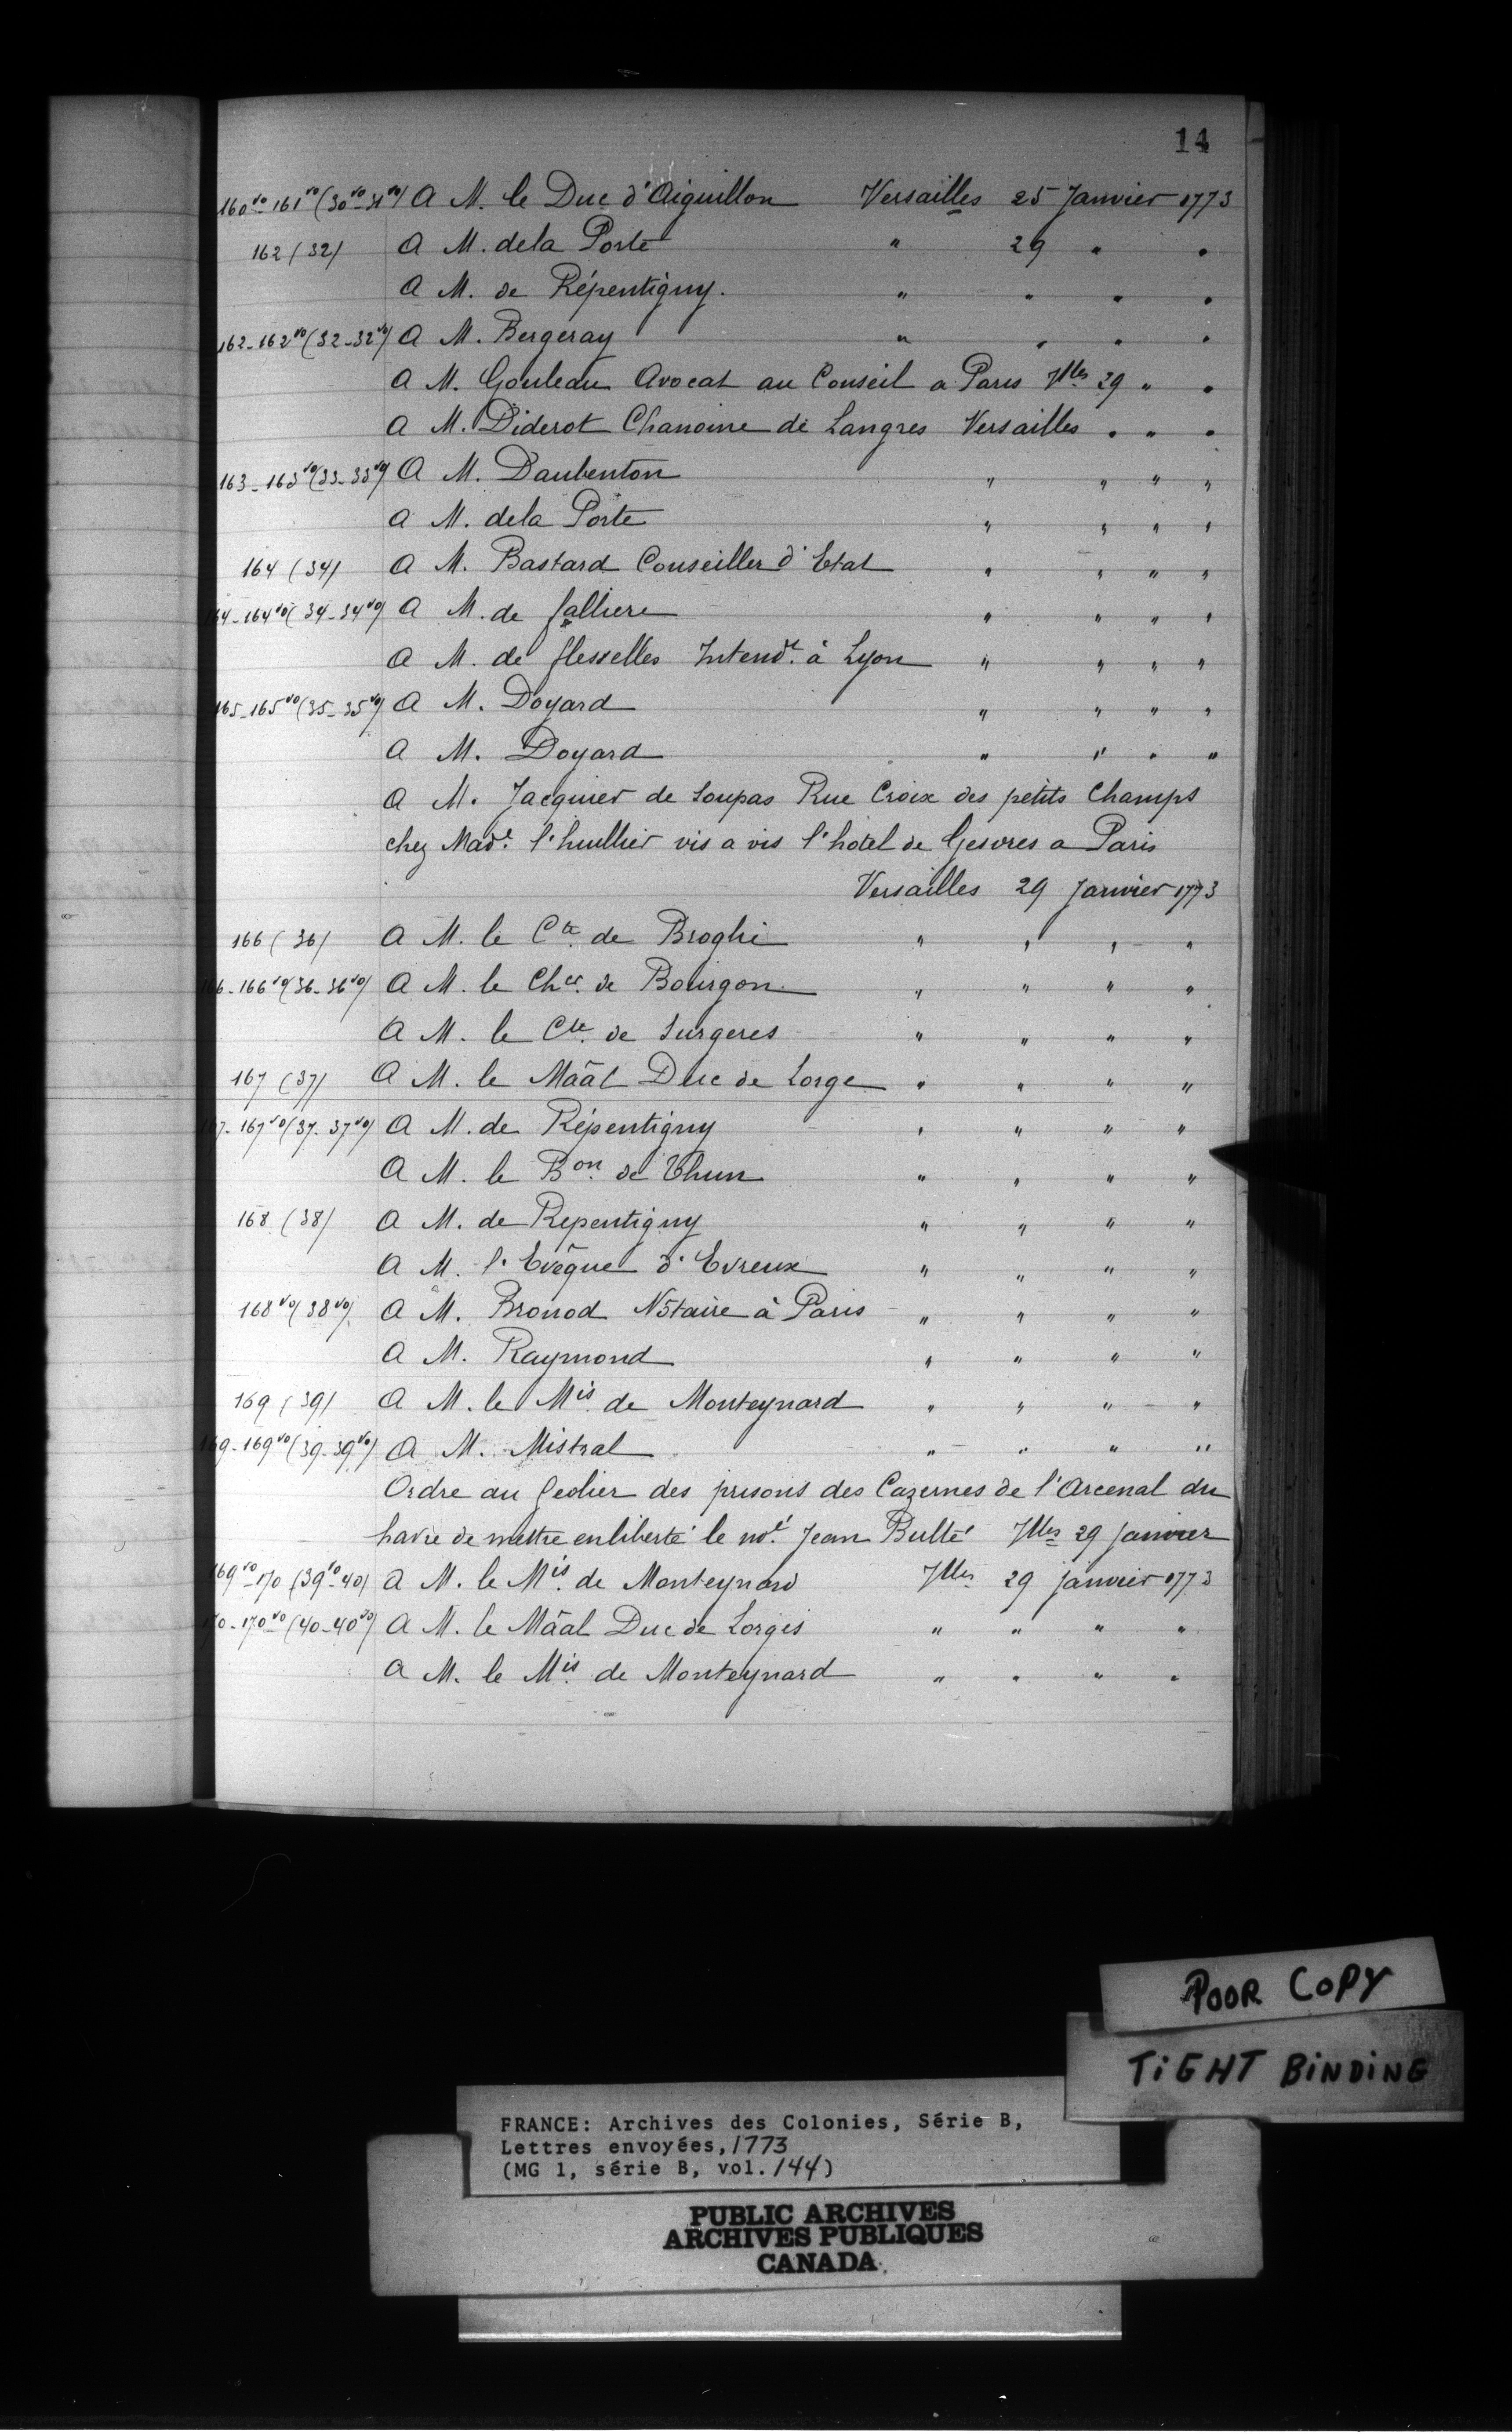 14
160vo-161vo (30vo-31vo) A M. le Duc d'Aiguillon Versailles 25 Janvier 1773
162 (32) A M. dela Porte " 29 " "
A M. de Répentigny. " " " "
162-162vo (32-32vo) A M. Bergeray " " " "
A M. Gouleau Avocat au Conseil a Paris Vlles 29 " "
A M. Diderot Chanoine de Langres Versailles " " "
163-163vo (33-33vo) A M. Daubenton " " " "
A M. dela Porte " " " "
164 (34) A M. Bastard Conseiller d'Etat " " " "
164-164vo (34-34vo) A M. de falliere " " " "
A M. de flesselles Intendt. à Lyon " " " "
165-165vo (35-35vo) A M. Doyard " " " "
A M. Doyard " " " "
A M. Jacquier de Soupas Rue Croix des petits Champs
chez Made. l'huillier vis a vis l'hotel de Gesvres a Paris
Versailles 29 Janvier 1773
166 (36) A M. le Cte. de Broglie " " " "
166-166vo (36-36vo) A M. le Cher. de Bourgon " " " "
A M. le Cte. de Surgeres " " " "
167 (37) A M. le Māāl Duc de Lorge " " " "
167-167vo (37-37vo) A M. de Répentigny " " " "
A M. le Bon. de Thun " " " "
168 (38) A M. de Repentigny " " " "
A M. l'Evêque d'Evreux " " " "
168vo (38vo) A M. Bronod Notaire à Paris " " " "
A M. Raymond " " " "
169 (39) A M. le Mis. de Monteynard " " " "
169-169vo (39-39vo) A M. Mistral " " " "
Ordre au Geolier des prisons des Cazernes de l'Arcenal du
havre de mettre enliberté le né. Jean Bullé Vlles 29 Janvier
169vo-170 (39vo-40) A M. le Mis. de Monteynard Vlles 29 janvier 1773
170-170vo (40-40vo) A M. le Māāl Duc de Lorges " " " "
A M. le Mis. de Monteynard " " " "
POOR COPY
TIGHT BINDING
FRANCE: Archives des Colonies, Série B,
Lettres envoyées, 1773
(MG 1, série B, vol. 144)
PUBLIC ARCHIVES
ARCHIVES PUBLIQUES
CANADA